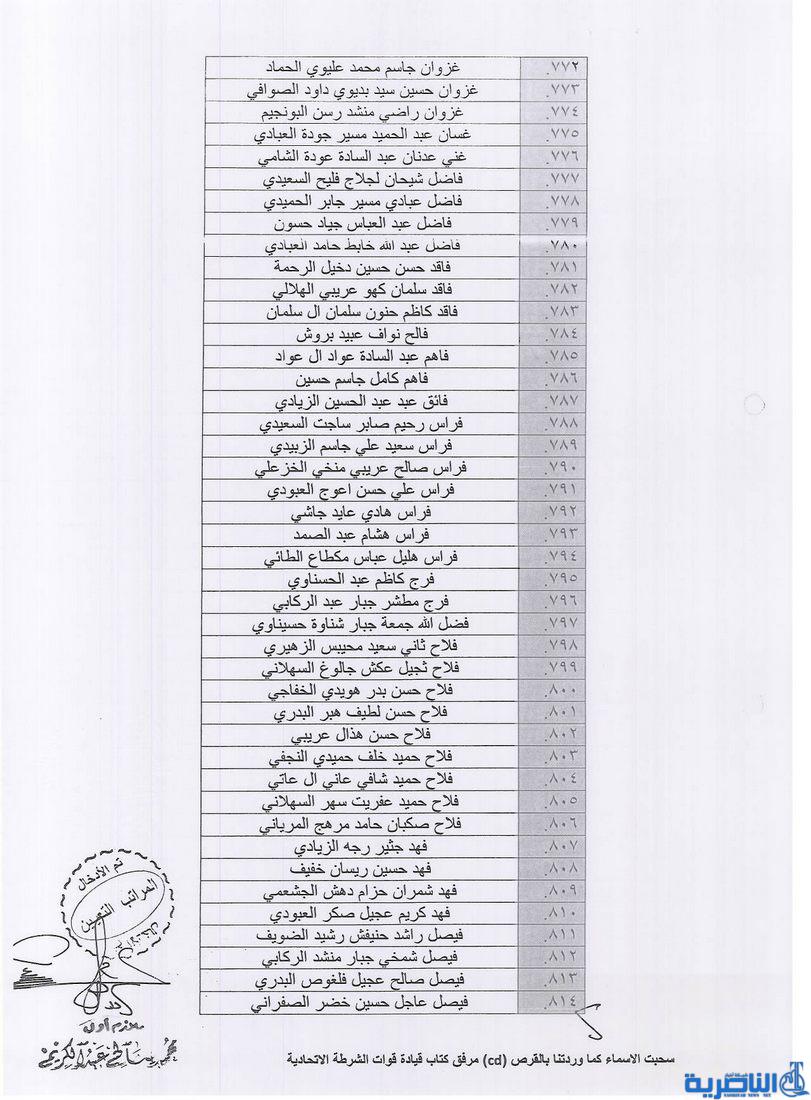 ٧٧٢. غزوان جاسم محمد عليوي الحماد
٧٧٣. غزوان حسين سيد بديوي داود الصوافي
٧٧٤. غزوان راضي منشد رسن البونجيم
٧٧٥. غسان عبد الحميد مسير جودة العبادي
٧٧٦. غني عدنان عبد السادة عودة الشامي
٧٧٧. فاضل شيحان لجلاج فليح السعيدي
٧٧٨. فاضل عبادي مسير جابر الحميدي
٧٧٩. فاضل عبد العباس جياد حسون
٧٨٠. فاضل عبد الله خابط حامد العبادي
٧٨١. فاقد حسن حسين دخيل الرحمة
٧٨٢. فاقد سلمان كهو عريبي الهلالي
٧٨٣. فاقد كاظم حنون سلمان ال سلمان
٧٨٤. فالح نواف عبيد بروش
٧٨٥. فاهم عبد السادة عواد ال عواد
٧٨٦. فاهم كامل جاسم حسين
٧٨٧. فائق عبد عبد الحسين الزيادي
٧٨٨. فراس رحيم صابر ساجت السعيدي
٧٨٩. فراس سعيد علي جاسم الزبيدي
٧٩٠. فراس صالح عريبي منخي الخزعلي
٧٩١. فراس علي حسن اعوج العبودي
٧٩٢. فراس هادي عايد جاشي
٧٩٣. فراس هشام عبد الصمد
٧٩٤. فراس هليل عباس مكطاع الطائي
٧٩٥. فرج كاظم عبد الحسناوي
٧٩٦. فرج مطشر جبار عبد الركابي
٧٩٧. فضل الله جمعة جبار شناوة حسيناوي
٧٩٨. فلاح ثاني سعيد محيبس الزهيري
٧٩٩. فلاح ثجيل عكش جالوغ السهلاني
٨٠٠. فلاح حسن بدر هويدي الخفاجي
٨٠١. فلاح حسن لطيف هبر البدري
٨٠٢. فلاح حسن هذال عريبي
٨٠٣. فلاح حميد خلف حميدي النجفي
٨٠٤. فلاح حميد شافي عاني ال عاتي
٨٠٥. فلاح حميد عفريت سهر السهلاني
٨٠٦. فلاح صكبان حامد مرهج المرياني
٨٠٧. فهد جثير رجه الزيادي
٨٠٨. فهد حسين ريسان خفيف
٨٠٩. فهد شمران حزام دهش الجشعمي
٨١٠. فهد كريم عجيل صكر العبودي
٨١١. فيصل راشد حنيفش رشيد الضويف
٨١٢. فيصل شمخي جبار منشد الركابي
٨١٣. فيصل صالح عجيل فلغوص البدري
٨١٤. فيصل عاجل حسين خضر الصفراني
تم الأدخال
المراتب التعيين
ملازم أول
محمد صالح عبد الكريم
سحبت الاسماء كما وردتنا بالقرص (cd) مرفق كتاب قيادة قوات الشرطة الاتحادية
شبكة اخبار
الناصرية
NASIRIYAH NEWS NET